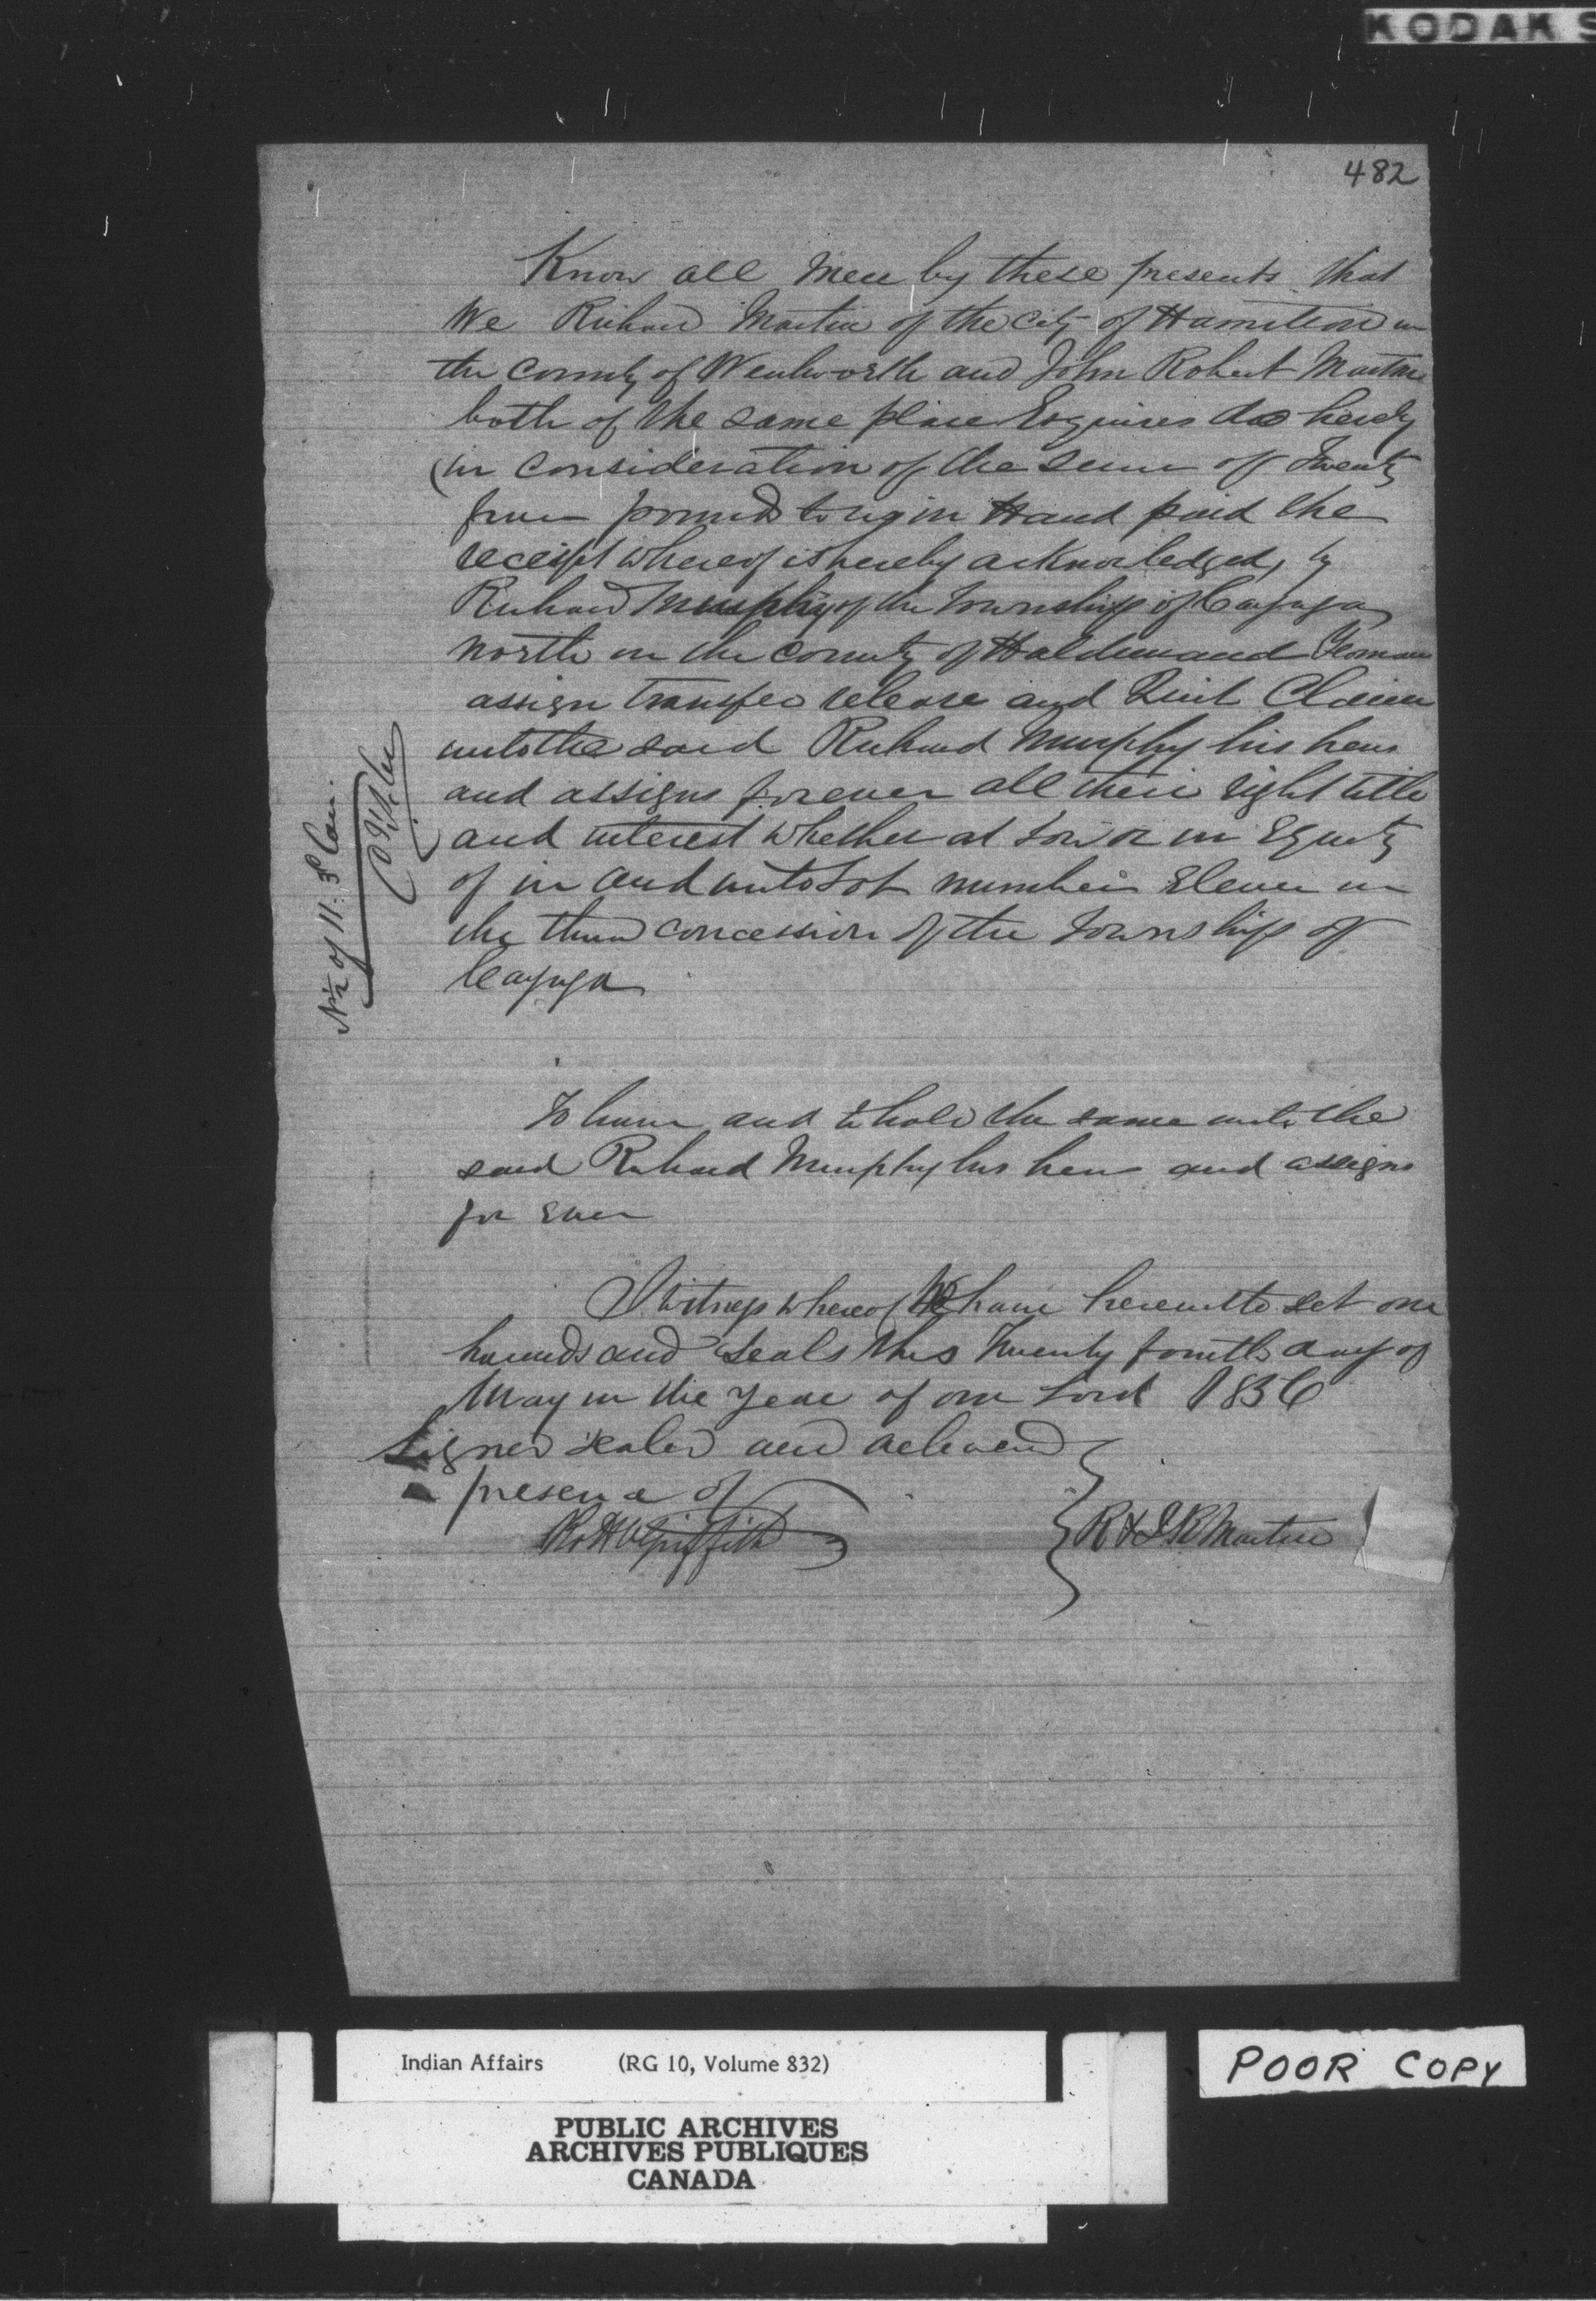 KODAK S
482
Know all Men by these presents that
We Richard Martin of the City of Hamilton in
the County of Wentworth and John Robert Martin
both of the same place Esquires do hereby
(in consideration of the sum of Twenty
four pounds to us in Hand paid the
receipt whereof is hereby acknowledged, by
Richard Murphy of the Township of Cayuga
North in the County of Haldimand Yeoman
assign transfer release and Quit Claim
unto the said Richard Murphy his heirs
and assigns forever all their right title
and interest whether at Law or in Equity
of in and unto Lot number Eleven in
the third concession of the Township of
Cayuga
N½ of 11. 3d Con.
To have and to hold the same unto the
said Richard Murphy his heirs and assigns
for ever
I witness whereof We have hereunto set our
hands and Seals this Twenty fourth day of
May in the Year of our Lord 1856
Signed sealed and delivered
presence of
Griffith
R & J R Martin
Indian Affairs (RG 10, Volume 832)
POOR COPY
PUBLIC ARCHIVES
ARCHIVES PUBLIQUES
CANADA